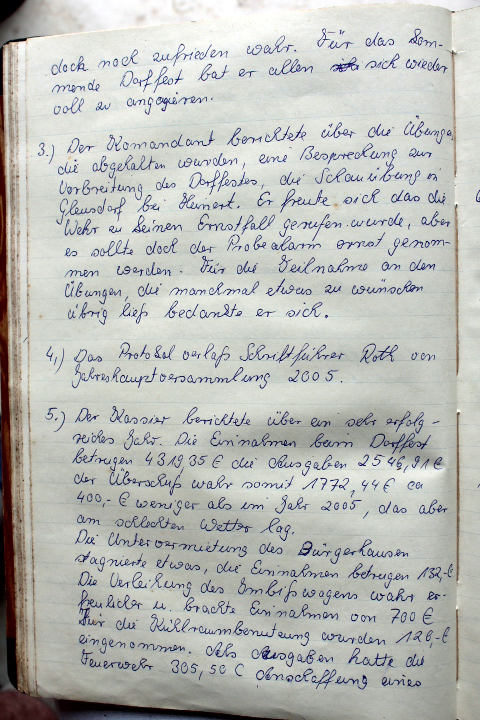 doch noch zufrieden wahr. Für das Kom-
mende Dorffest bat er allen sich wieder
voll zu angagieren.
3.) Der Komandant berichtete über die Übungen
die abgehalten wurden, eine Besprechung zur
Vorbreitung des Dorffestes, die Schauübung in
bei Er freute sich das die
Wehr zu keinen Ernstfall gerufen wurde, aber
es sollte doch der Probealarm ernst genom-
men werden. Für die Teilnahme an den
Übungen, die manchmal etwas zu wünschen
übrig ließ bedankte er sich.
4.) Das Protokol verlaß Schriftführer Roth von
Jahreshauptversammlung 2005.
5.) Der Kassier berichtete über ein sehr erfolg-
reiches Jahr. Die Einnahmen beim Dorffest
betrugen 4319,35 € die Ausgaben 2546,91 €
der Überschuß wahr somit 1772,44 € ca
400,- € weniger als im Jahr 2005, das aber
am schlechten Wetter lag.
Die Untervermietung des Bürgerhauses
stagnierte etwas, die Einnahmen betrugen 132,-€
Die Verleihung des Imbißwagens wahr er-
freulicher u. brachte Einnahmen von 700 €
Für die Kühlraumbenutzung wurden 120,-€
eingenommen. Als Ausgaben hatte die
Feuerwehr 305,50 € Anschaffung eines